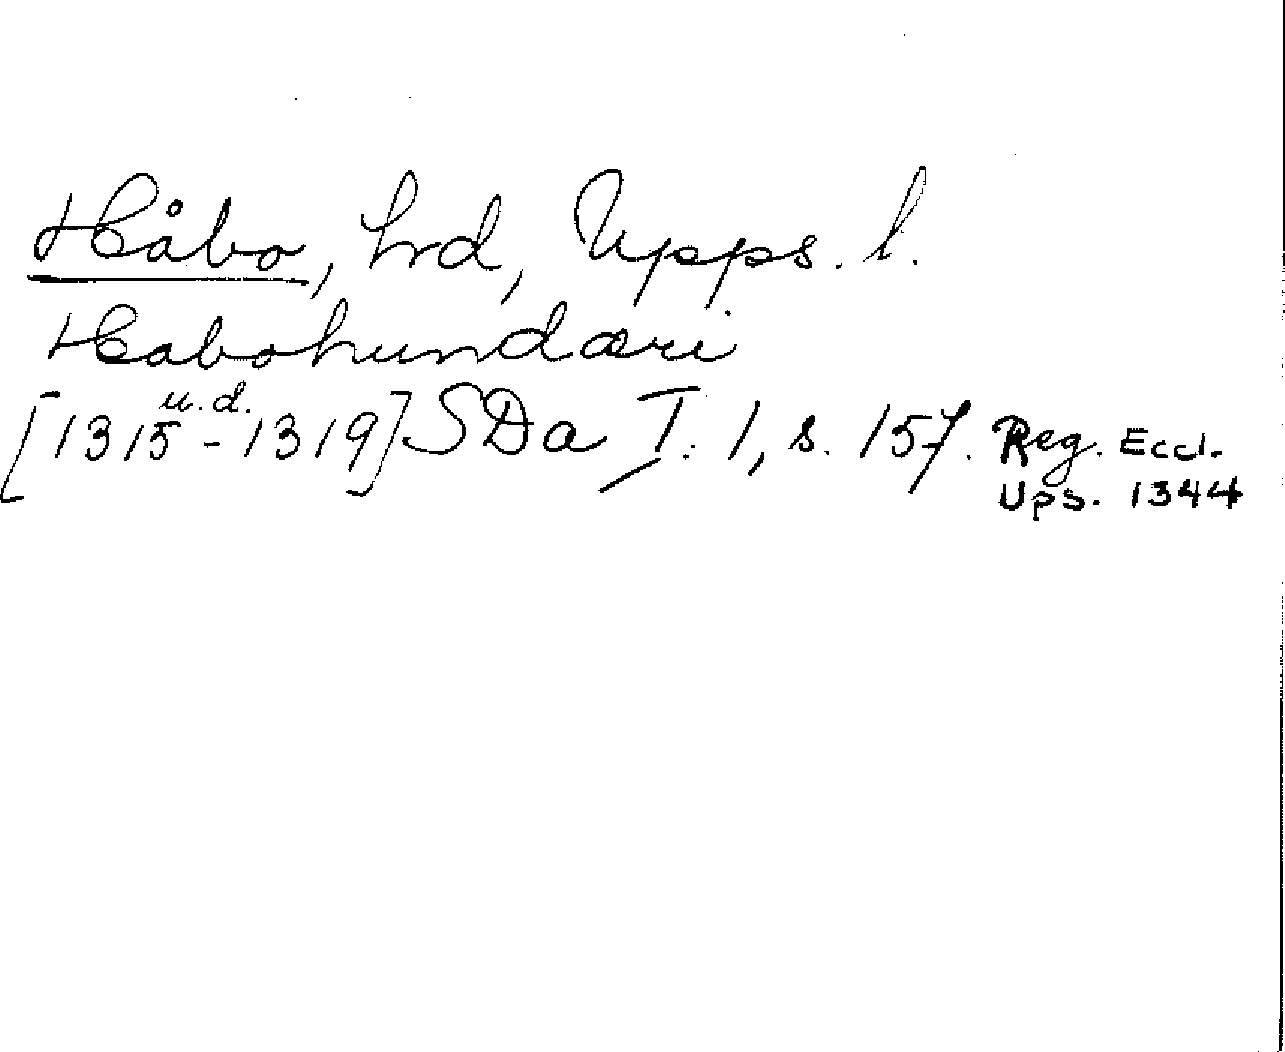 Håbo, hrd, Upps. l.
Habohundæri
u. d.
[1315-1319] SDa I: 1, s. 157. Reg. Eccl.
Ups. 1344